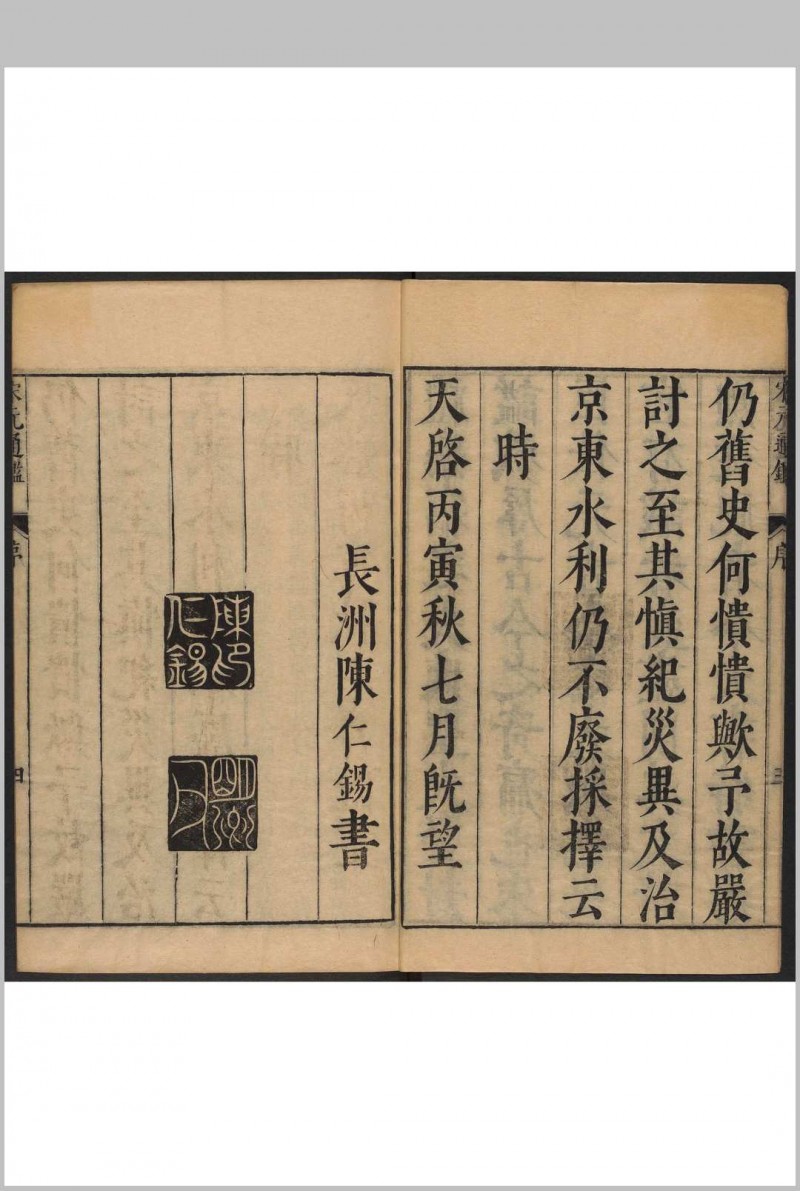 宋元通鑑
序
三
仍舊史何憒憒歟予故嚴
討之至其愼紀災異及治
京東水利仍不廢採擇云
時
天啓丙寅秋七月旣望
長洲陳仁錫書
陳印
仁錫
明卿
宋元通鑑
序
四